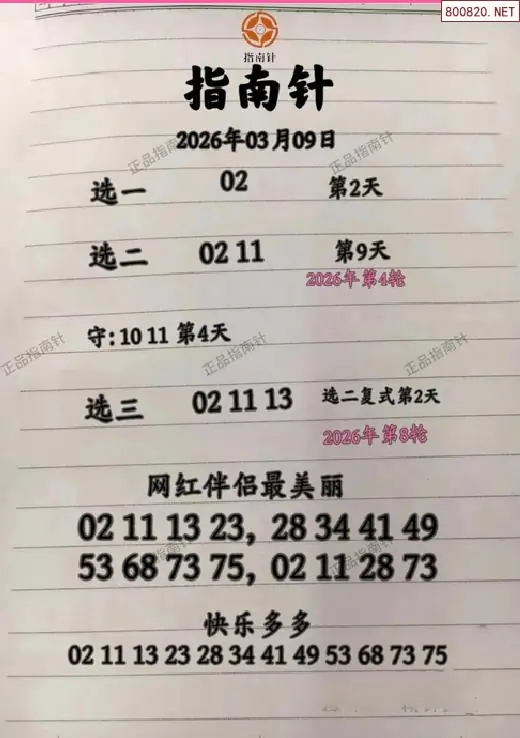 800820.NET
指南针
指南针
2026年03月09日
选一 02 第2天
选二 02 11 第9天
2026年第4轮
守:10 11 第4天
选三 02 11 13 选二复式第2天
2026年第8轮
网红伴侣最美丽
02 11 13 23, 28 34 41 49
53 68 73 75, 02 11 28 73
快乐多多
02 11 13 23 28 34 41 49 53 68 73 75
正品指南针
正品指南针
正品指南针
正品指南针
正品指南针
正品指南针
正品指南针